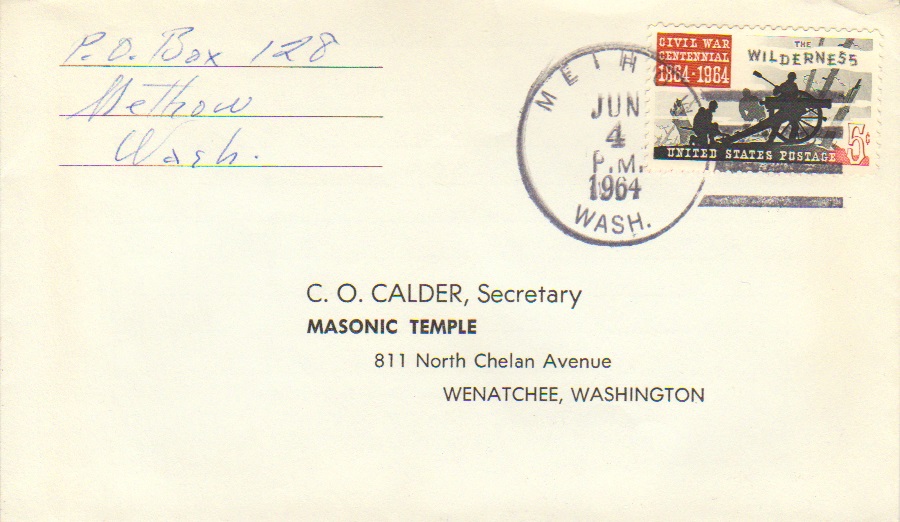 P.O. Box 128
Methow
Wash.
METH
JUN
4
P.M.
1964
WASH.
CIVIL WAR
CENTENNIAL
1864-1964
THE
WILDERNESS
UNITED STATES POSTAGE
5¢
C. O. CALDER, Secretary
MASONIC TEMPLE
811 North Chelan Avenue
WENATCHEE, WASHINGTON